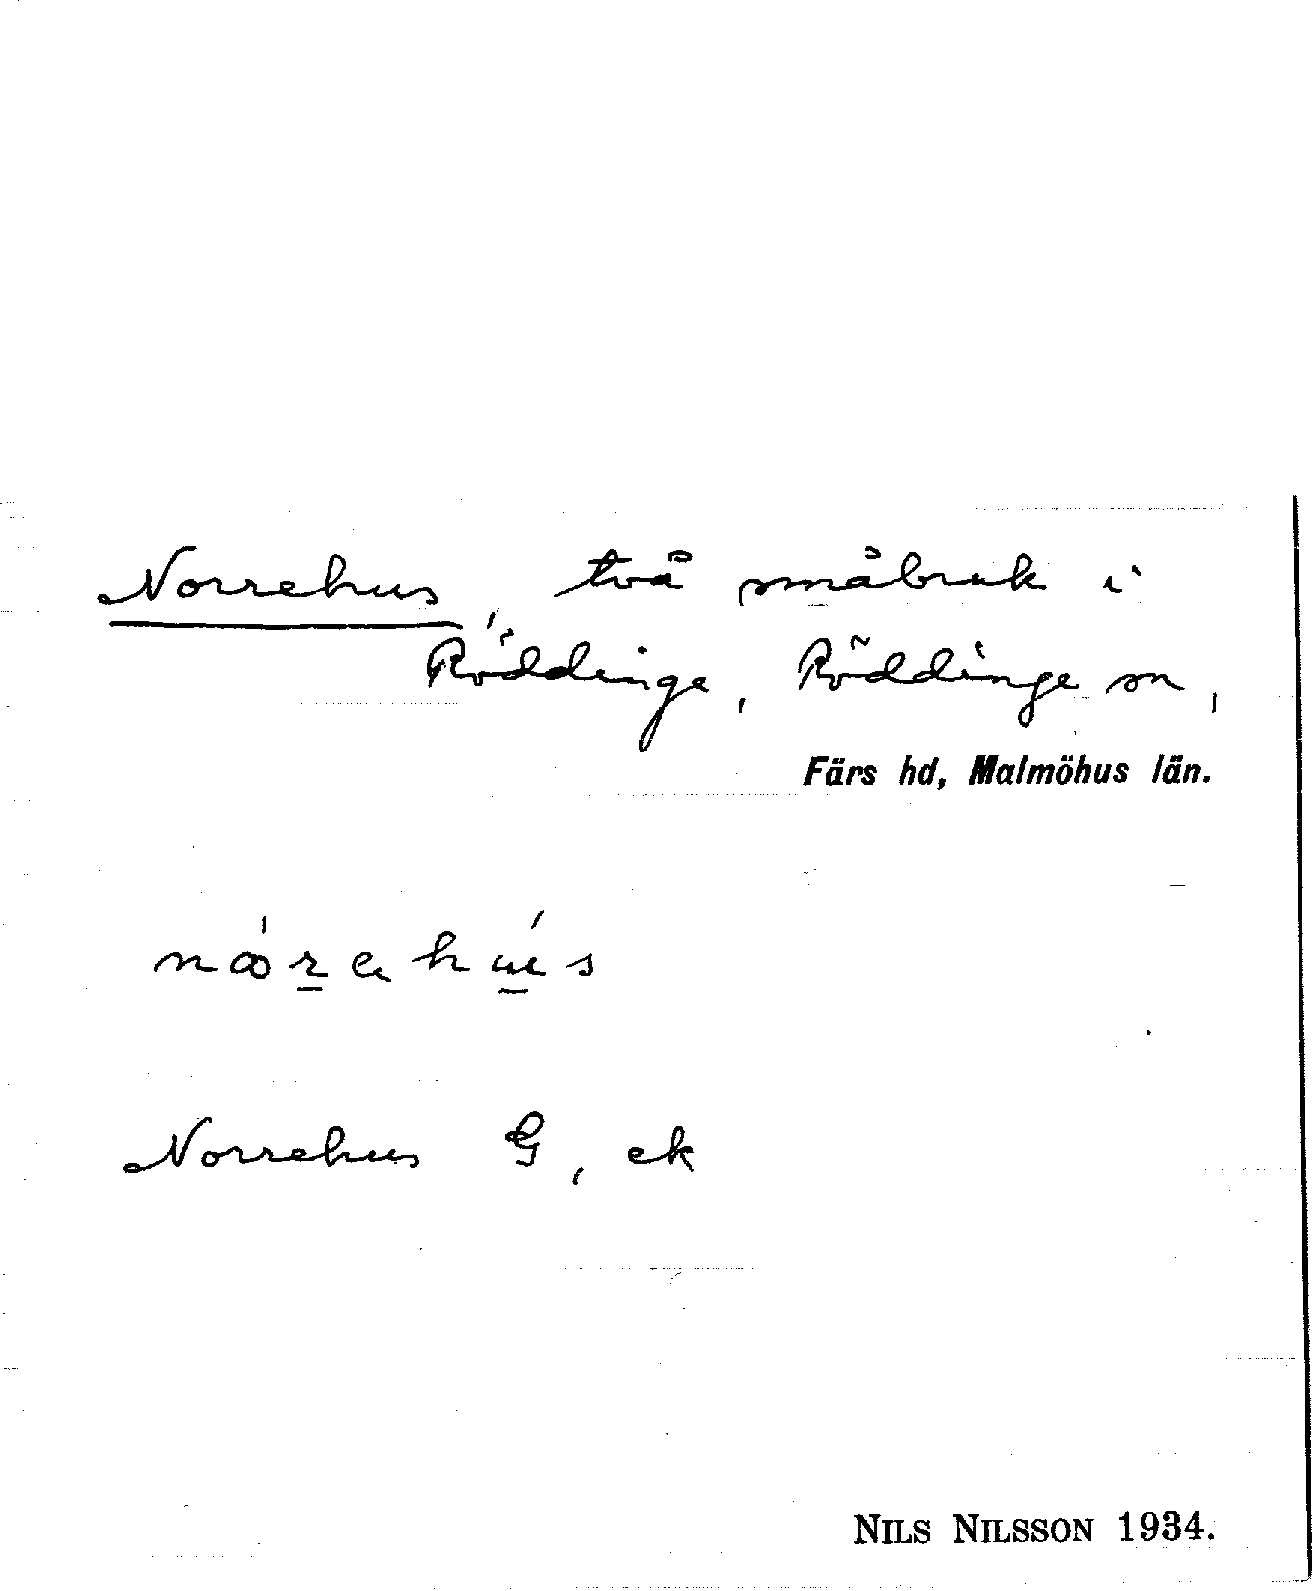 Norrehus, två småbruk i
Röddinge, Röddinge sn,
Färs hd, Malmöhus län.
Norrehus G, ek
NILS NILSSON 1934.